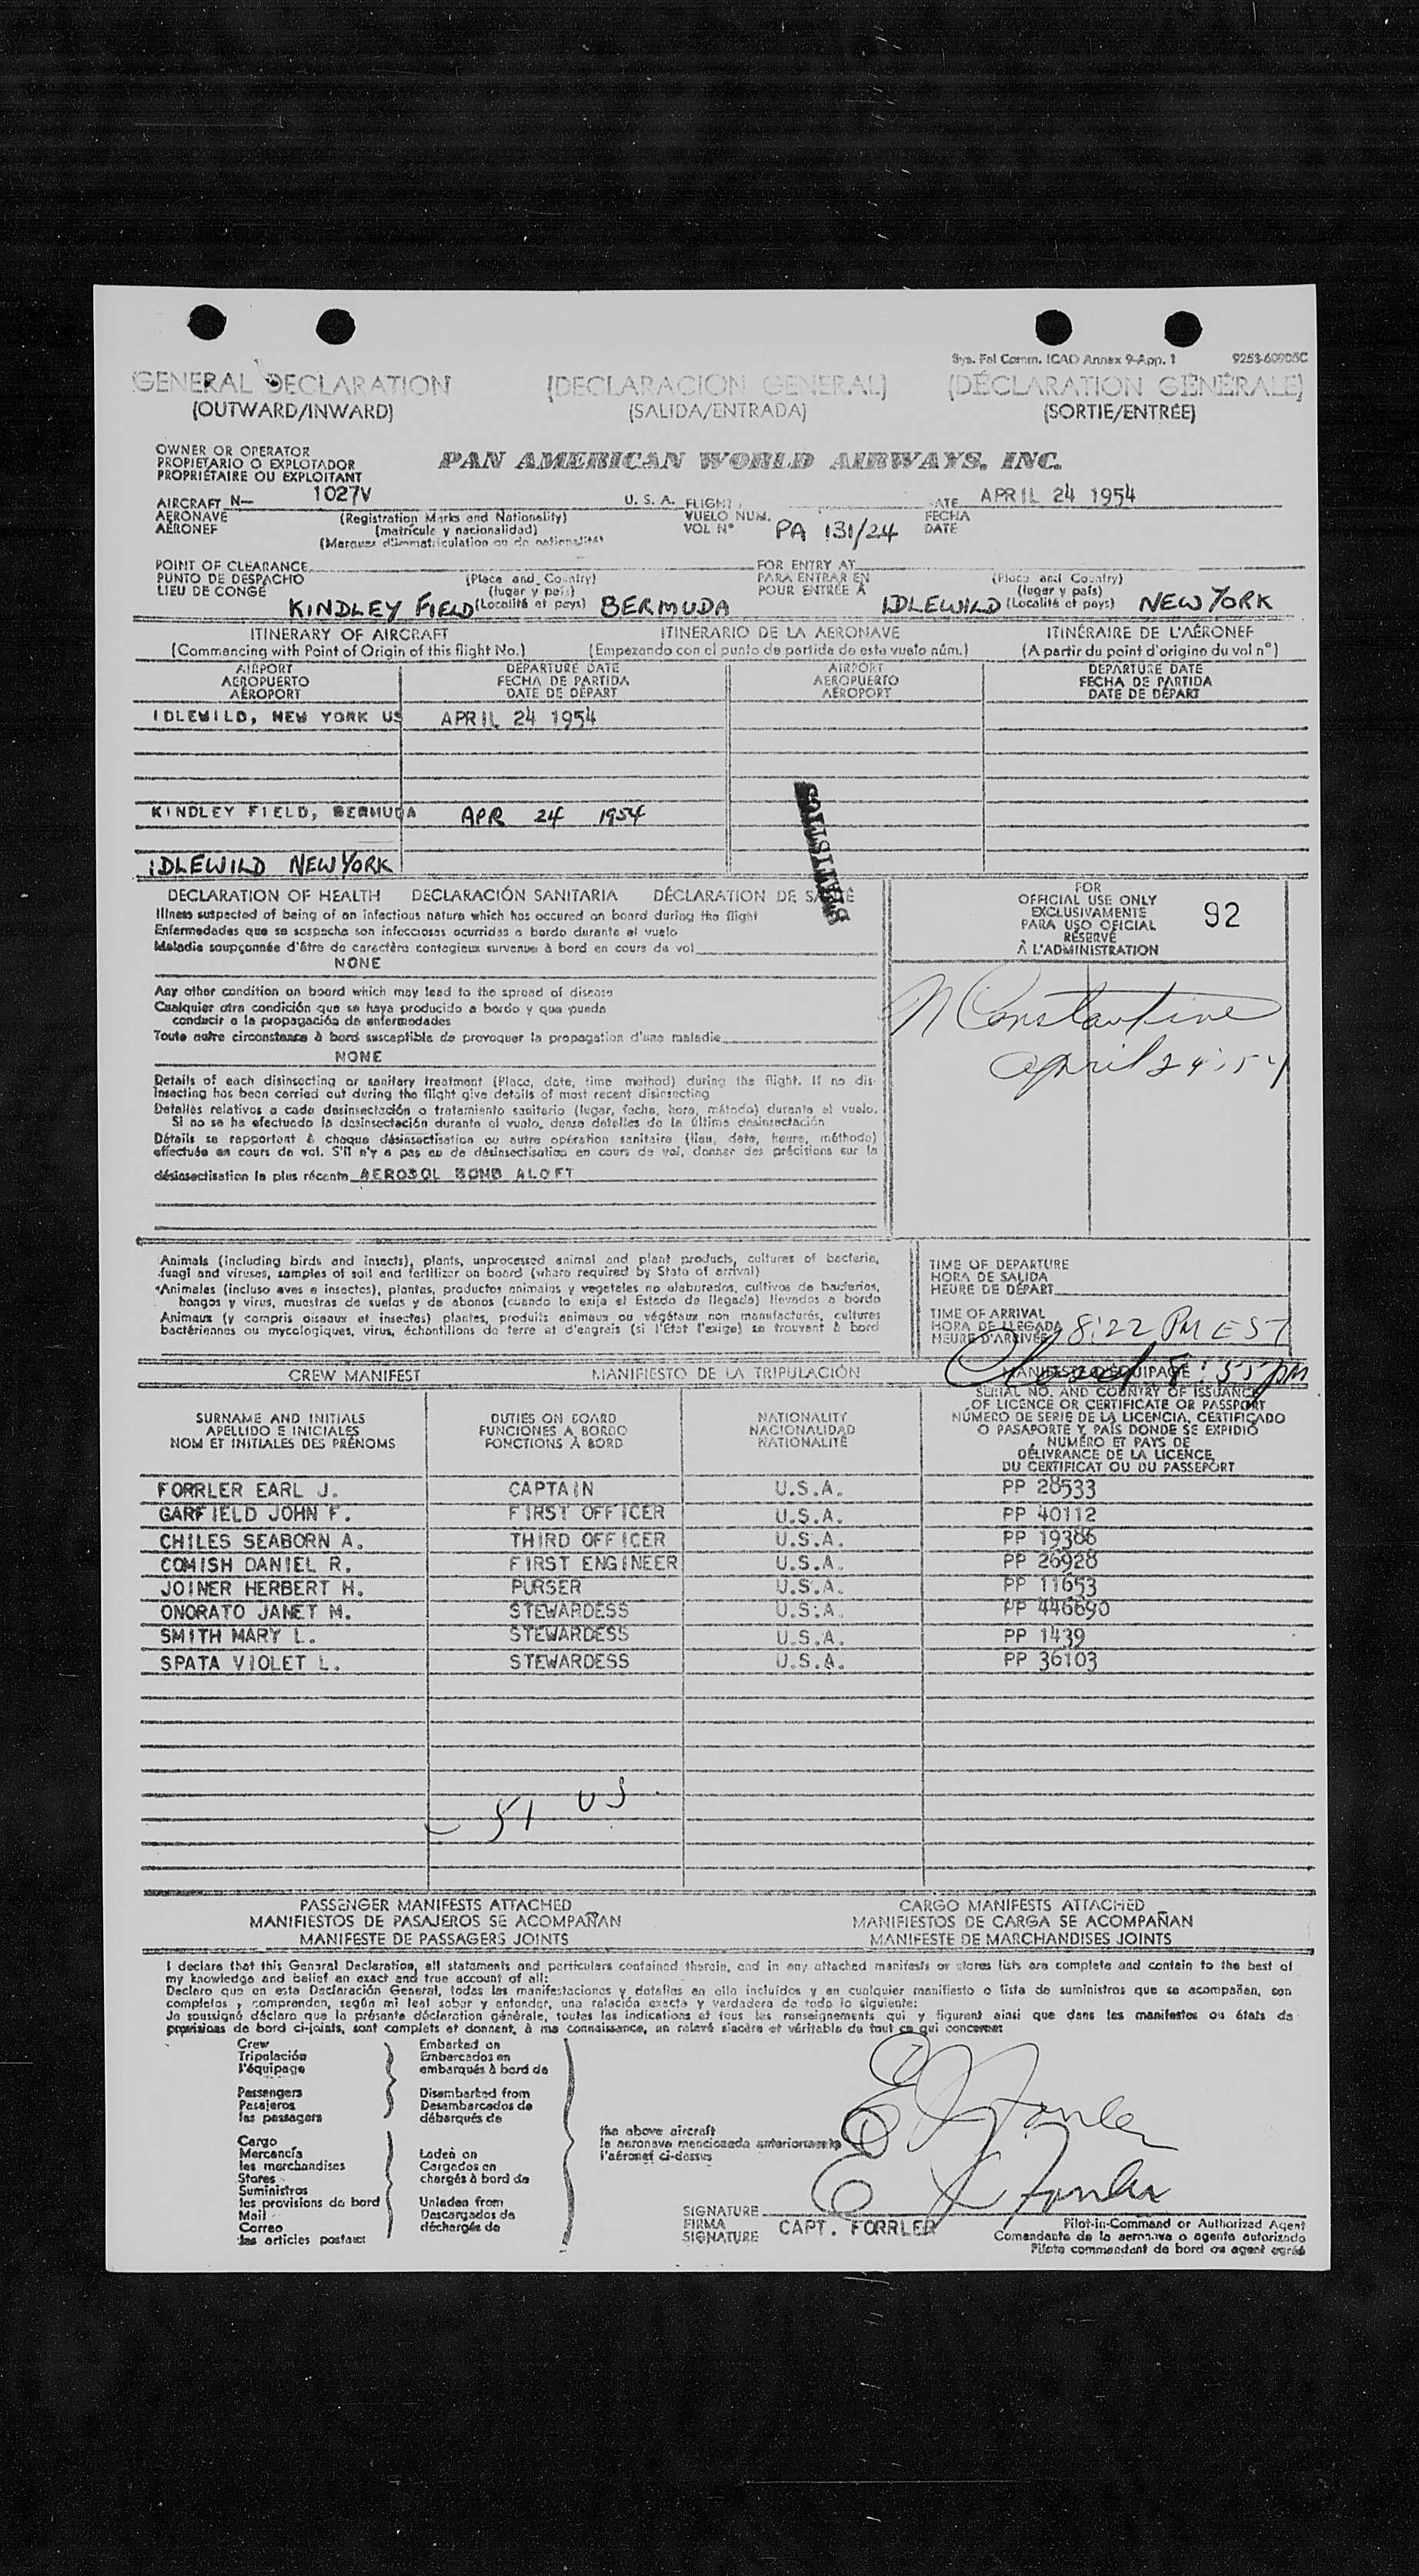 Sys. Fal Comm. ICAO Annex 9-App. 1 9253-60905C
GENERAL DECLARATION (DECLARACION GENERAL) (DÉCLARATION GÉNÉRALE)
(OUTWARD/INWARD) (SALIDA/ENTRADA) (SORTIE/ENTRÉE)
OWNER OR OPERATOR
PROPIETARIO O EXPLOTADOR
PROPRIÉTAIRE OU EXPLOITANT
PAN AMERICAN WORLD AIRWAYS, INC.
AIRCRAFT N— 1027V U. S. A. FLIGHT DATE APRIL 24 1954
AERONAVE (Registration Marks and Nationality) VUELO NUM. FECHA
AÉRONEF (matrícule y nacionalidad) VOL N° PA 131/24 DATE
(Marques d'immatriculation ou de nationalité)
POINT OF CLEARANCE FOR ENTRY AT
PUNTO DE DESPACHO (Place and Country) PARA ENTRAR EN (Place and Country)
LIEU DE CONGÉ (lugar y país) POUR ENTRÉE À (lugar y país)
KINDLEY FIELD (Localité et pays) BERMUDA IDLEWILD (Localité et pays) NEW YORK
ITINERARY OF AIRCRAFT ITINERARIO DE LA AERONAVE ITINÉRAIRE DE L'AÉRONEF
(Commencing with Point of Origin of this flight No.) (Empezando con el punto de partida de este vuelo núm.) (A partir du point d'origine du vol n°)
AIRPORT DEPARTURE DATE AIRPORT DEPARTURE DATE
AEROPUERTO FECHA DE PARTIDA AEROPUERTO FECHA DE PARTIDA
AÉROPORT DATE DE DÉPART AÉROPORT DATE DE DÉPART
IDLEWILD, NEW YORK US APRIL 24 1954
KINDLEY FIELD, BERMUDA APR 24 1954
IDLEWILD NEW YORK
STATISTICS
DECLARATION OF HEALTH DECLARACIÓN SANITARIA DÉCLARATION DE SANTÉ
Illness suspected of being of an infectious nature which has occured on board during the flight
Enfermedades que se sospecha son infecciosas ocurridas a bordo durante el vuelo
Maladie soupçonnée d'être de caractère contagieux survenue à bord en cours de vol
NONE
Any other condition on board which may lead to the spread of disease
Cualquier otra condición que se haya producido a bordo y que pueda
conducir a la propagación de enfermedades
Toute autre circonstance à bord susceptible de provoquer la propagation d'une maladie
NONE
Details of each disinsecting or sanitary treatment (Place, date, time method) during the flight. If no dis-
insecting has been carried out during the flight give details of most recent disinsecting
Detalles relativos a cada desinsectación o tratamiento sanitario (lugar, fecha, hora, método) durante el vuelo.
Si no se ha efectuado la desinsectación durante el vuelo, dense detalles de la última desinsectación
Détails se rapportant à chaque désinsectisation ou autre opération sanitaire (lieu, date, heure, méthode)
effectuée en cours de vol. S'il n'y a pas eu de désinsectisation en cours de vol, donner des précisions sur la
désinsectisation la plus récente AEROSOL BOMB ALOFT
FOR
OFFICIAL USE ONLY
EXCLUSIVAMENTE
PARA USO OFICIAL
RÉSERVÉ
À L'ADMINISTRATION
92
N Constantine
April 24 : 54
Animals (including birds and insects), plants, unprocessed animal and plant products, cultures of bacteria,
fungi and viruses, samples of soil and fertilizer on board (where required by State of arrival)
Animales (incluso aves e insectos), plantas, productos animales y vegetales no elaborados, cultivos de bacterias,
hongos y virus, muestras de suelos y de abonos (cuando lo exija el Estado de llegada) llevados a bordo
Animaux (y compris oiseaux et insectes) plantes, produits animaux ou végétaux non manufacturés, cultures
bactériennes ou mycologiques, virus, échantillons de terre et d'engrais (si l'État l'exige) se trouvant à bord
TIME OF DEPARTURE
HORA DE SALIDA
HEURE DE DÉPART
TIME OF ARRIVAL
HORA DE LLEGADA
HEURE D'ARRIVÉE 8:22 PM EST
Cleared 8:55 PM
CREW MANIFEST MANIFIESTO DE LA TRIPULACIÓN MANIFESTE D'ÉQUIPAGE
SURNAME AND INITIALS
APELLIDO E INICIALES
NOM ET INITIALES DES PRÉNOMS
DUTIES ON BOARD
FUNCIONES A BORDO
FONCTIONS À BORD
NATIONALITY
NACIONALIDAD
NATIONALITÉ
SERIAL NO. AND COUNTRY OF ISSUANCE
OF LICENCE OR CERTIFICATE OR PASSPORT
NÚMERO DE SERIE DE LA LICENCIA, CERTIFICADO
O PASAPORTE Y PAÍS DONDE SE EXPIDIÓ
NUMÉRO ET PAYS DE
DÉLIVRANCE DE LA LICENCE,
DU CERTIFICAT OU DU PASSEPORT
FORRLER EARL J. CAPTAIN U.S.A. PP 28533
GARFIELD JOHN F. FIRST OFFICER U.S.A. PP 40112
CHILES SEABORN A. THIRD OFFICER U.S.A. PP 19386
COMISH DANIEL R. FIRST ENGINEER U.S.A. PP 26928
JOINER HERBERT H. PURSER U.S.A. PP 11653
ONORATO JANET M. STEWARDESS U.S.A. PP 446690
SMITH MARY L. STEWARDESS U.S.A. PP 1439
SPATA VIOLET L. STEWARDESS U.S.A. PP 36103
51 US
PASSENGER MANIFESTS ATTACHED CARGO MANIFESTS ATTACHED
MANIFIESTOS DE PASAJEROS SE ACOMPAÑAN MANIFIESTOS DE CARGA SE ACOMPAÑAN
MANIFESTE DE PASSAGERS JOINTS MANIFESTE DE MARCHANDISES JOINTS
I declare that this General Declaration, all statements and particulars contained therein, and in any attached manifests or stores lists are complete and contain to the best of
my knowledge and belief an exact and true account of all:
Declaro que en esta Declaración General, todas las manifestaciones y detalles en ella incluídos y en cualquier manifiesto o lista de suministros que se acompañan, son
completos y comprenden, según mi leal saber y entender, una relación exacta y verdadera de todo lo siguiente:
Je soussigné déclare que la présente déclaration générale, toutes les indications et tous les renseignements qui y figurent ainsi que dans les manifestes ou états de
provisions de bord ci-joints, sont complets et donnent, à ma connaissance, un relevé sincère et véritable de tout ce qui concerne:
Crew Embarked on
Tripulación Embarcados en
l'équipage embarqués à bord de
Passengers Disembarked from
Pasajeros Desembarcados de
les passagers débarqués de
Cargo
Mercancía Laden on
les marchandises Cargados en
Stores chargés à bord de
Suministros
les provisions de bord Unladen from
Mail Descargados de
Correo déchargés de
les articles postaux
the above aircraft
la aeronave mencionada anteriormente
l'aéronef ci-dessus
SIGNATURE
FIRMA CAPT. FORRLER
SIGNATURE
Pilot-in-Command or Authorized Agent
Comandante de la aeronave o agente autorizado
Pilote commandant de bord ou agent agréé